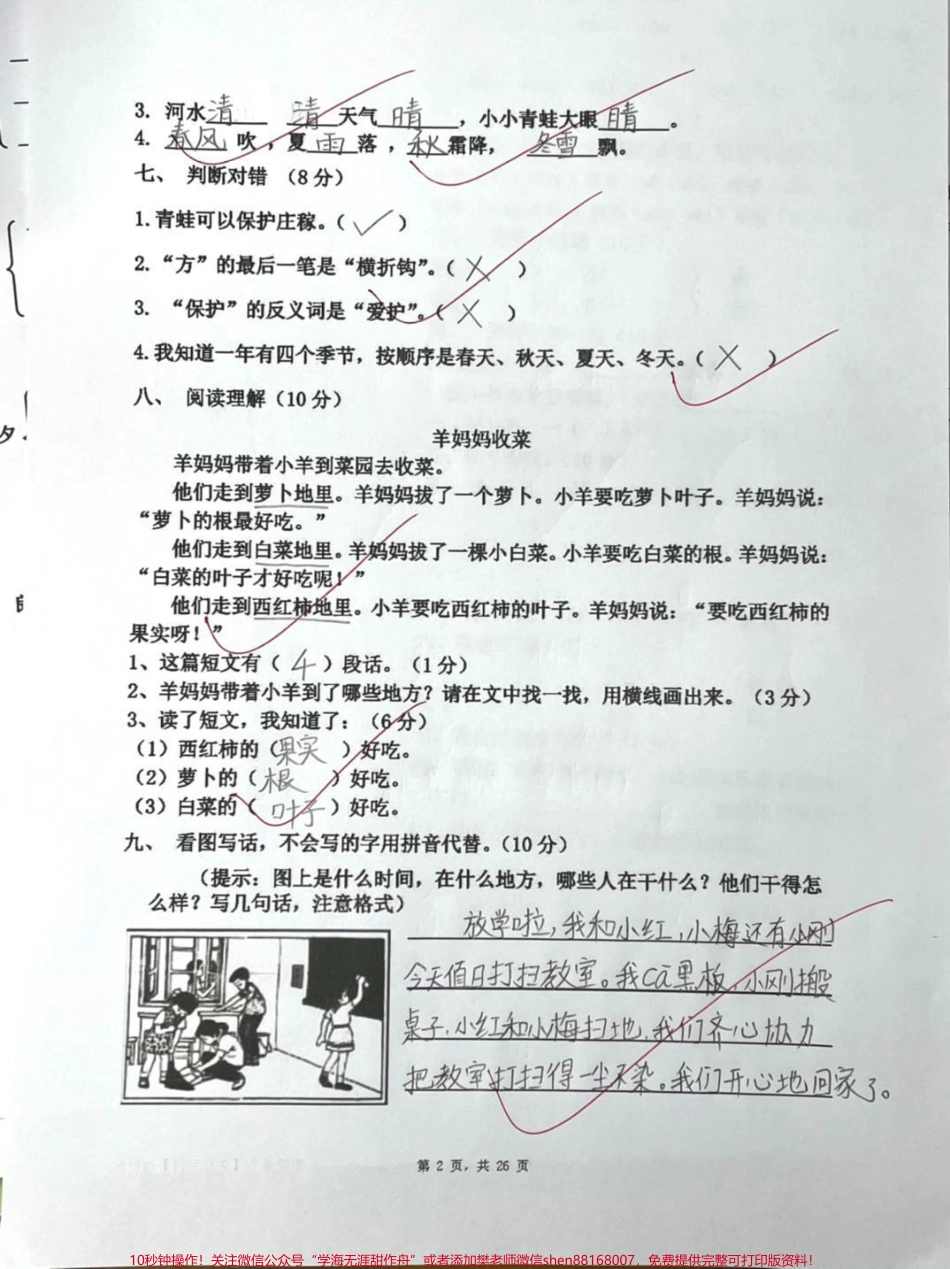 3. 河水清 晴天气晴，小小青蛙大眼睛。
4. 春风吹，夏雨落，秋霜降，冬雪飘。
七、 判断对错 （8分）
1.青蛙可以保护庄稼。(✓)
2.“方”的最后一笔是“横折钩”。(X)
3. “保护”的反义词是“爱护”。(X)
4.我知道一年有四个季节，按顺序是春天、秋天、夏天、冬天。(X)
八、 阅读理解（10分）
羊妈妈收菜
羊妈妈带着小羊到菜园去收菜。
他们走到萝卜地里。羊妈妈拔了一个萝卜。小羊要吃萝卜叶子。羊妈妈说：
“萝卜的根最好吃。”
他们走到白菜地里。羊妈妈拔了一棵小白菜。小羊要吃白菜的根。羊妈妈说：
“白菜的叶子才好吃呢！”
他们走到西红柿地里。小羊要吃西红柿的叶子。羊妈妈说：“要吃西红柿的
果实呀！”
1、这篇短文有（4）段话。（1分）
2、羊妈妈带着小羊到了哪些地方？请在文中找一找，用横线画出来。（3分）
3、读了短文，我知道了：（6分）
（1）西红柿的（果实）好吃。
（2）萝卜的（根）好吃。
（3）白菜的（叶子）好吃。
九、 看图写话，不会写的字用拼音代替。（10分）
（提示：图上是什么时间，在什么地方，哪些人在干什么？他们干得怎
么样？写几句话，注意格式）
放学啦，我和小红，小梅还有小刚
今天值日打扫教室。我cā黑板，小刚搬
桌子，小红和小梅扫地，我们齐心协力
把教室打扫得一尘不染。我们开心地回家了。
第 2 页，共 26 页
10秒钟操作！关注微信公众号“学海无涯甜作舟”或者添加樊老师微信shen88168007，免费提供完整可打印版资料！